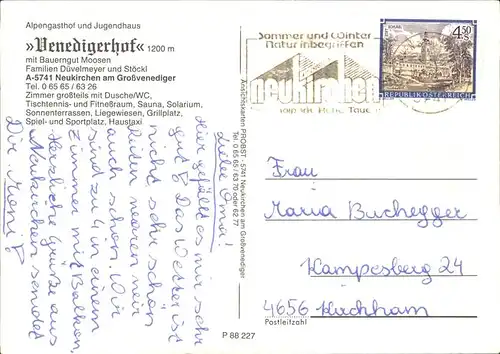 Alpengasthof und Jugendhaus
»Venedigerhof« 1200 m
mit Bauerngut Moosen
Familien Düvelmeyer und Stöckl
A-5741 Neukirchen am Großvenediger
Tel. 0 65 65 / 63 26
Zimmer großteils mit Dusche/WC,
Tischtennis- und Fitneßraum, Sauna, Solarium,
Sonnenterrassen, Liegewiesen, Grillplatz,
Spiel- und Sportplatz, Haustaxi
Liebe Oma!
Hier gefällt es mir sehr
gut. Das Wetter ist
nicht sehr schön
Reiten waren wir
auch schon. Wir
sind zu 4 in einem
Zimmer mit Balkon.
Herzliche Grüße aus
Neukirchen sendet
Dir
Ansichtskarten PROBST - 5741 Neukirchen am Großvenediger
Tel. 0 65 65 / 63 70 oder 62 77
Sommer und Winter
Natur inbegriffen
neukirchen
4.50
REPUBLIK ÖSTERREICH
Frau
Maria Buchegger
Kampesberg 24
4656 Kirchham
Postleitzahl
P 88 227